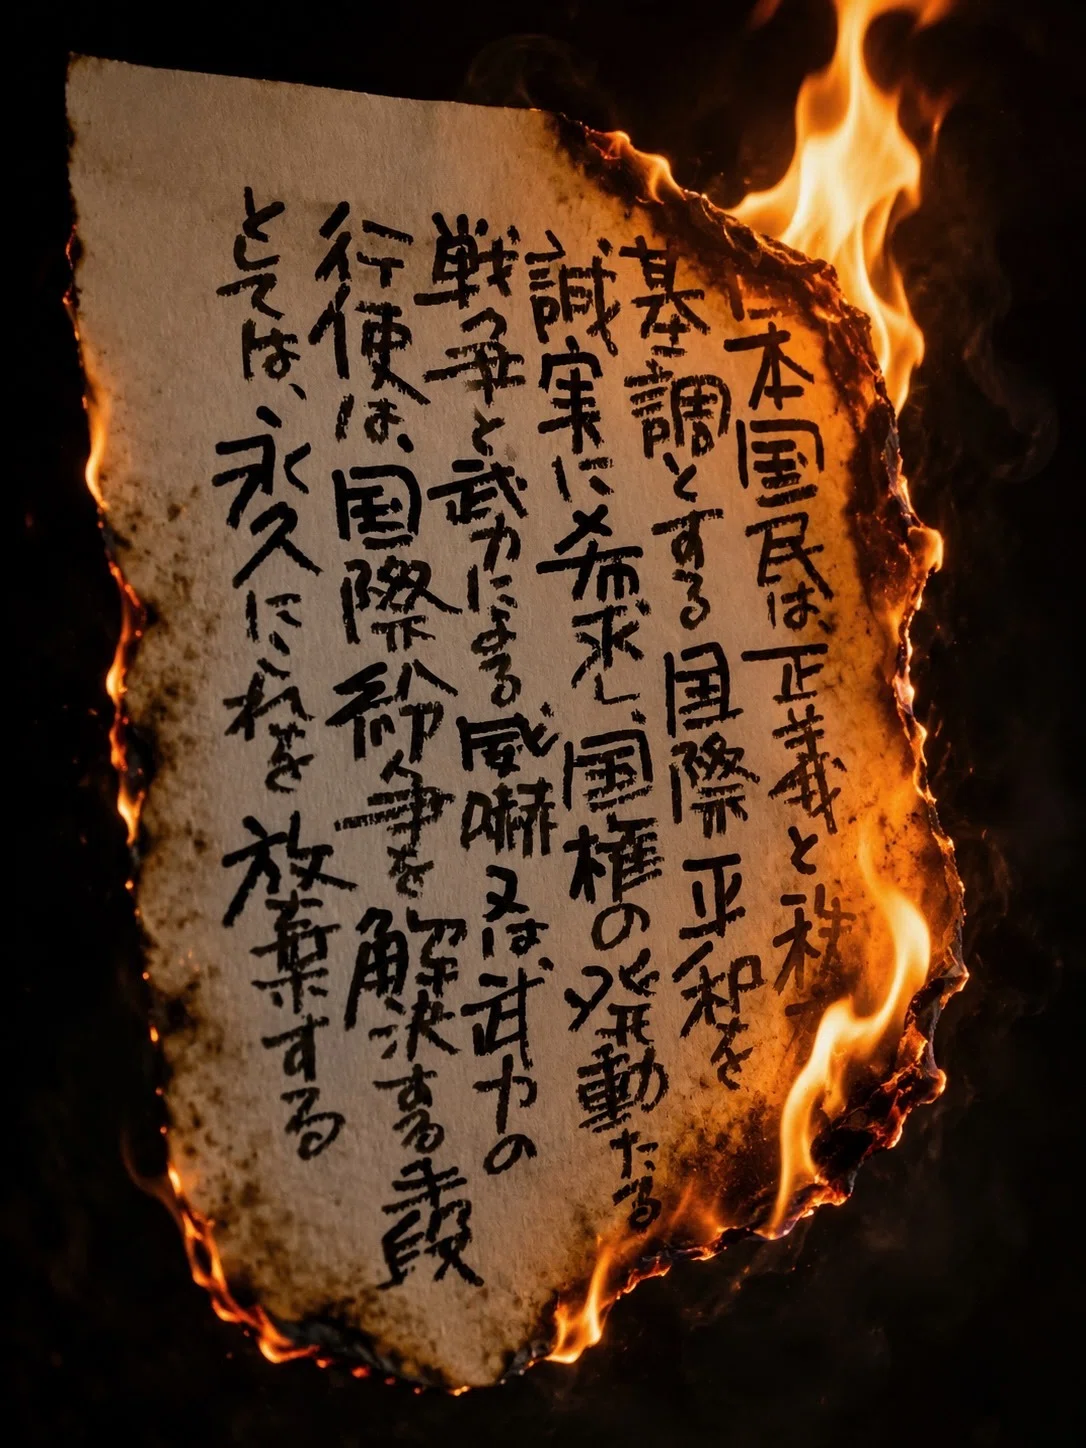 日本国民は、正義と秩
基調とする国際平和を
誠実に希求し、国権の発動たる
戦争と武力による威嚇又は、武力の
行使は、国際紛争を解決する手段
としては、永久にこれを放棄する